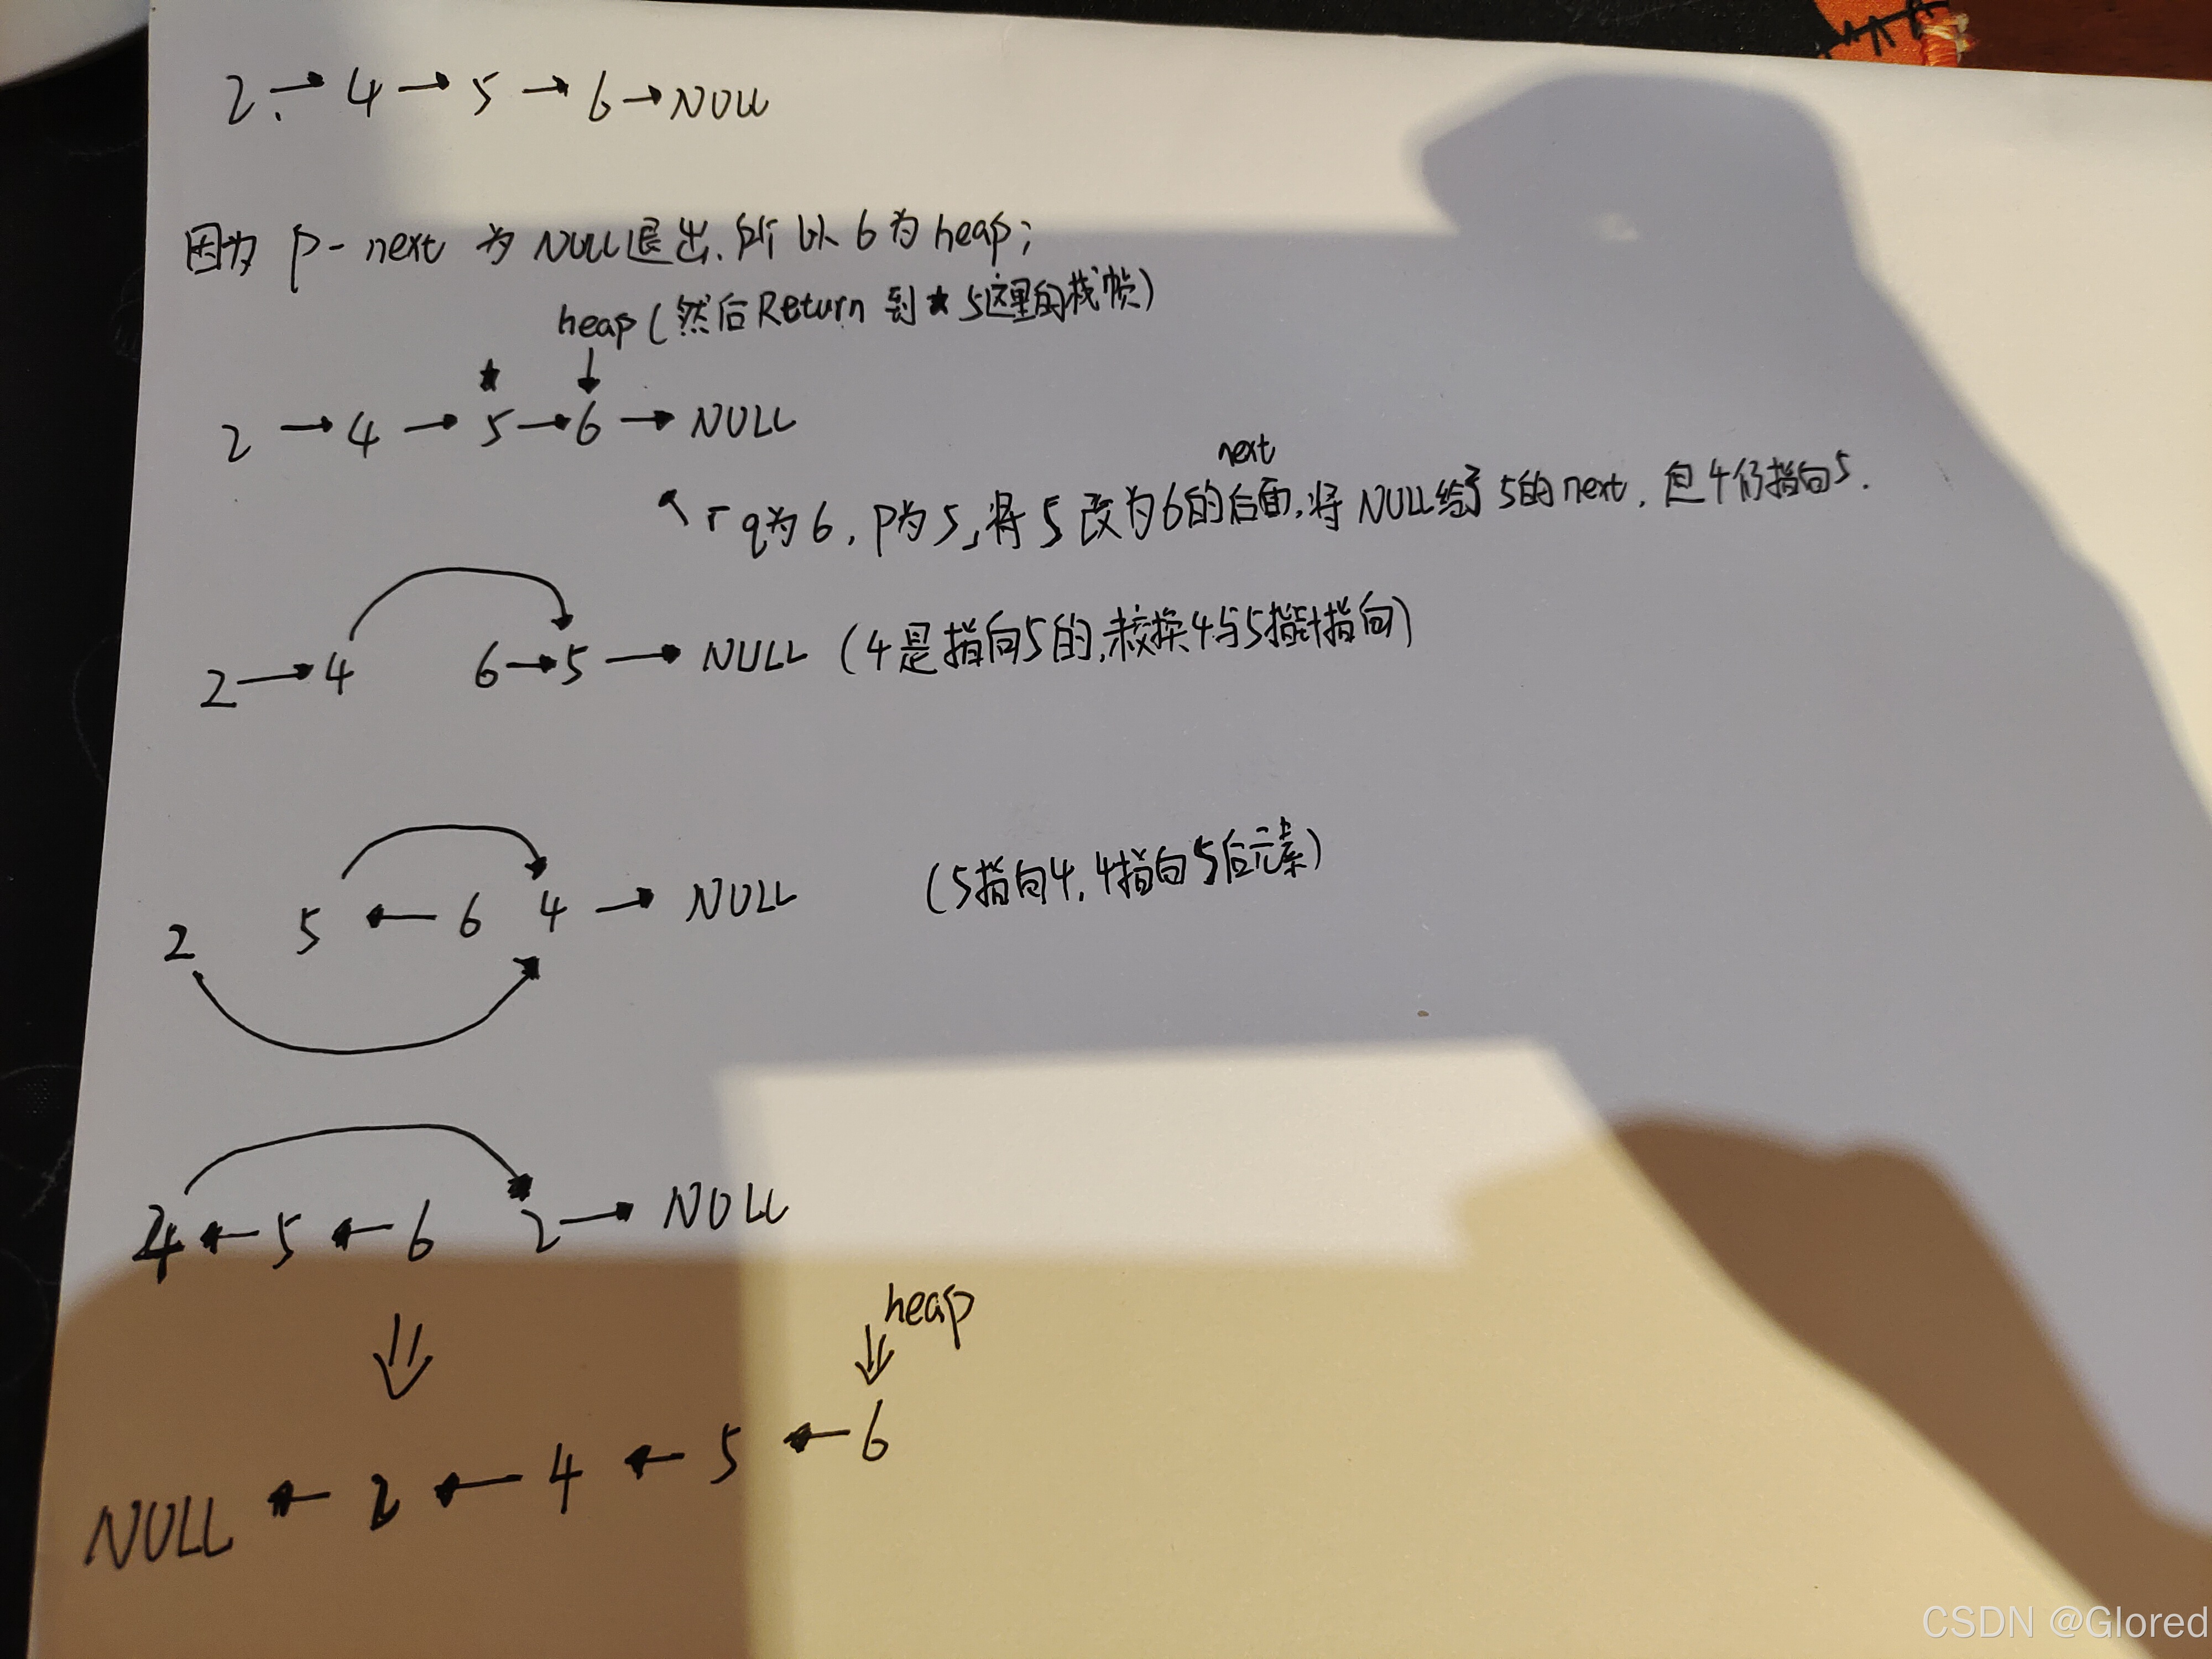 2 → 4 → 5 → 6 → NULL
因为 p-next 为 NULL退出.所以 6为 heap;
heap (然后Return 到★5这里的栈帧)
★
2 → 4 → 5 → 6 → NULL
next
q为6, p为5,将5改为6的后面,将NULL给了5的next, 但4仍指向5.
2 → 4 6 → 5 → NULL (4是指向5的,未交换4与5指针指向)
2 5 ← 6 4 → NULL (5指向4, 4指向5后元素)
4 ← 5 ← 6 2 → NULL
heap
NULL ← 2 ← 4 ← 5 ← 6
CSDN @Glored